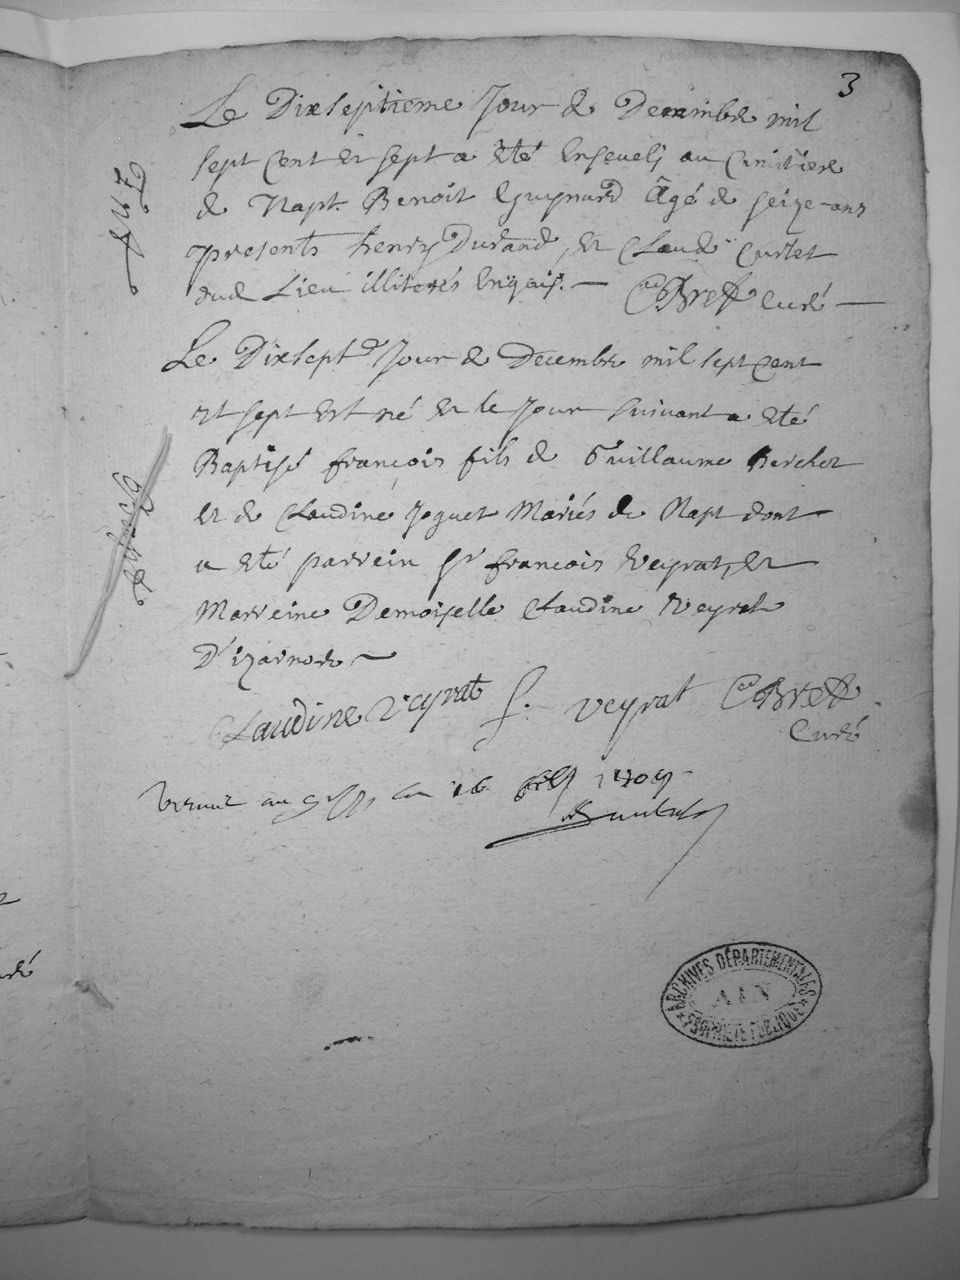 3
Le Dixseptieme Jour de Decembre mil
sept Cent et sept a été Enseveli au Cimitiere
de Napt. Benoit Guynard âgé de seize ans
presents henry Durand, et Claude Curtet
dud. Lieu illiterés Enquis. — Bret Curé —
Le Dixsept.e Jour de Decembre mil sept Cent
et sept Est né et le Jour suivant a eté
Baptisé francois fils de Guillaume Berchet
et de Claudine Joguet Mariés de Napt dont
a eté parrein Sr francois Veyrat, et
Marreine Demoiselle Claudine Veyrat
D'izarnore ~
Claudine Veyrat f. veyrat Bret
Curé
au 16 1709
ARCHIVES DÉPARTEMENTALES
AIN
PROPRIÉTÉ PUBLIQUE